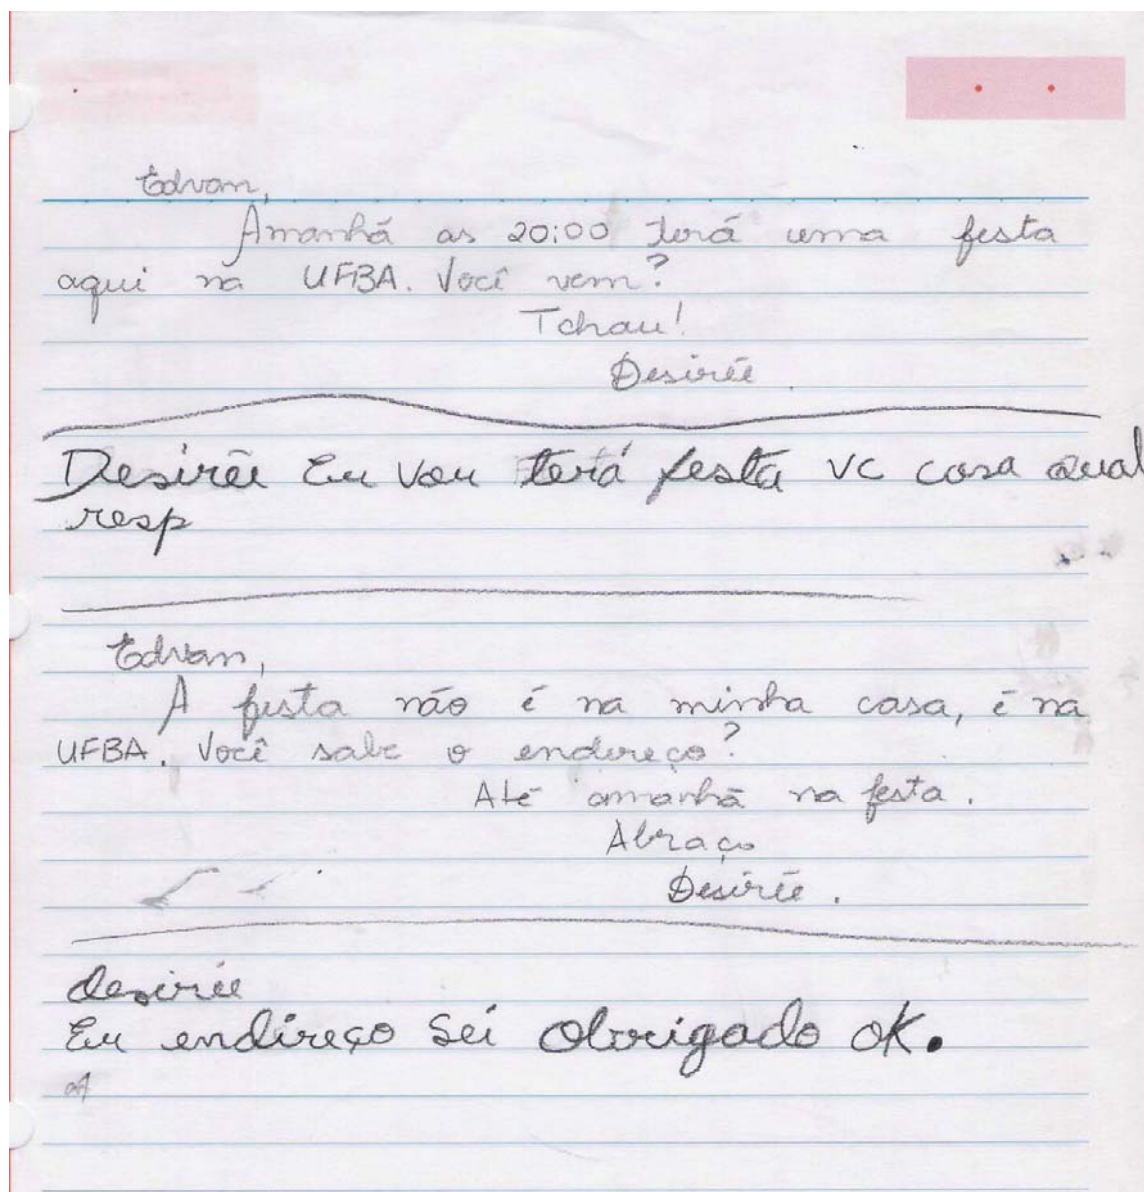 Edvan,
Amanhã as 20:00 terá uma festa
aqui na UFBA. Você vem?
Tchau!
Desirée
Desirée Eu vou terá festa vc casa qual
resp
Edvan,
A festa não é na minha casa, é na
UFBA. Você sabe o endereço?
Até amanhã na festa.
Abraço
Desirée.
desirée
Eu endireço sei obrigado ok.